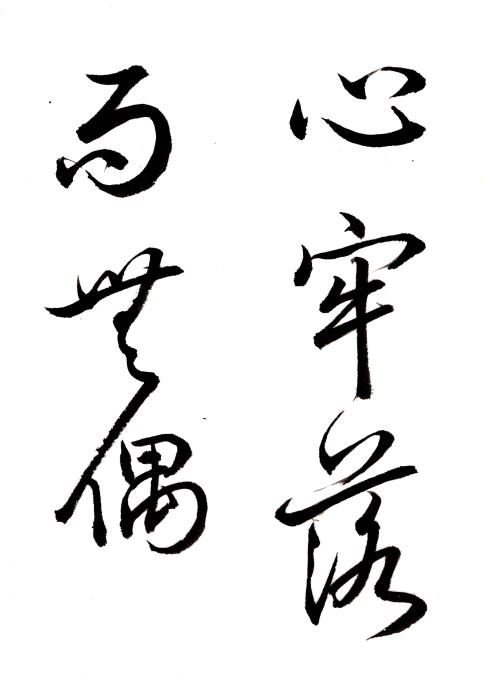 心牢落
而無偶